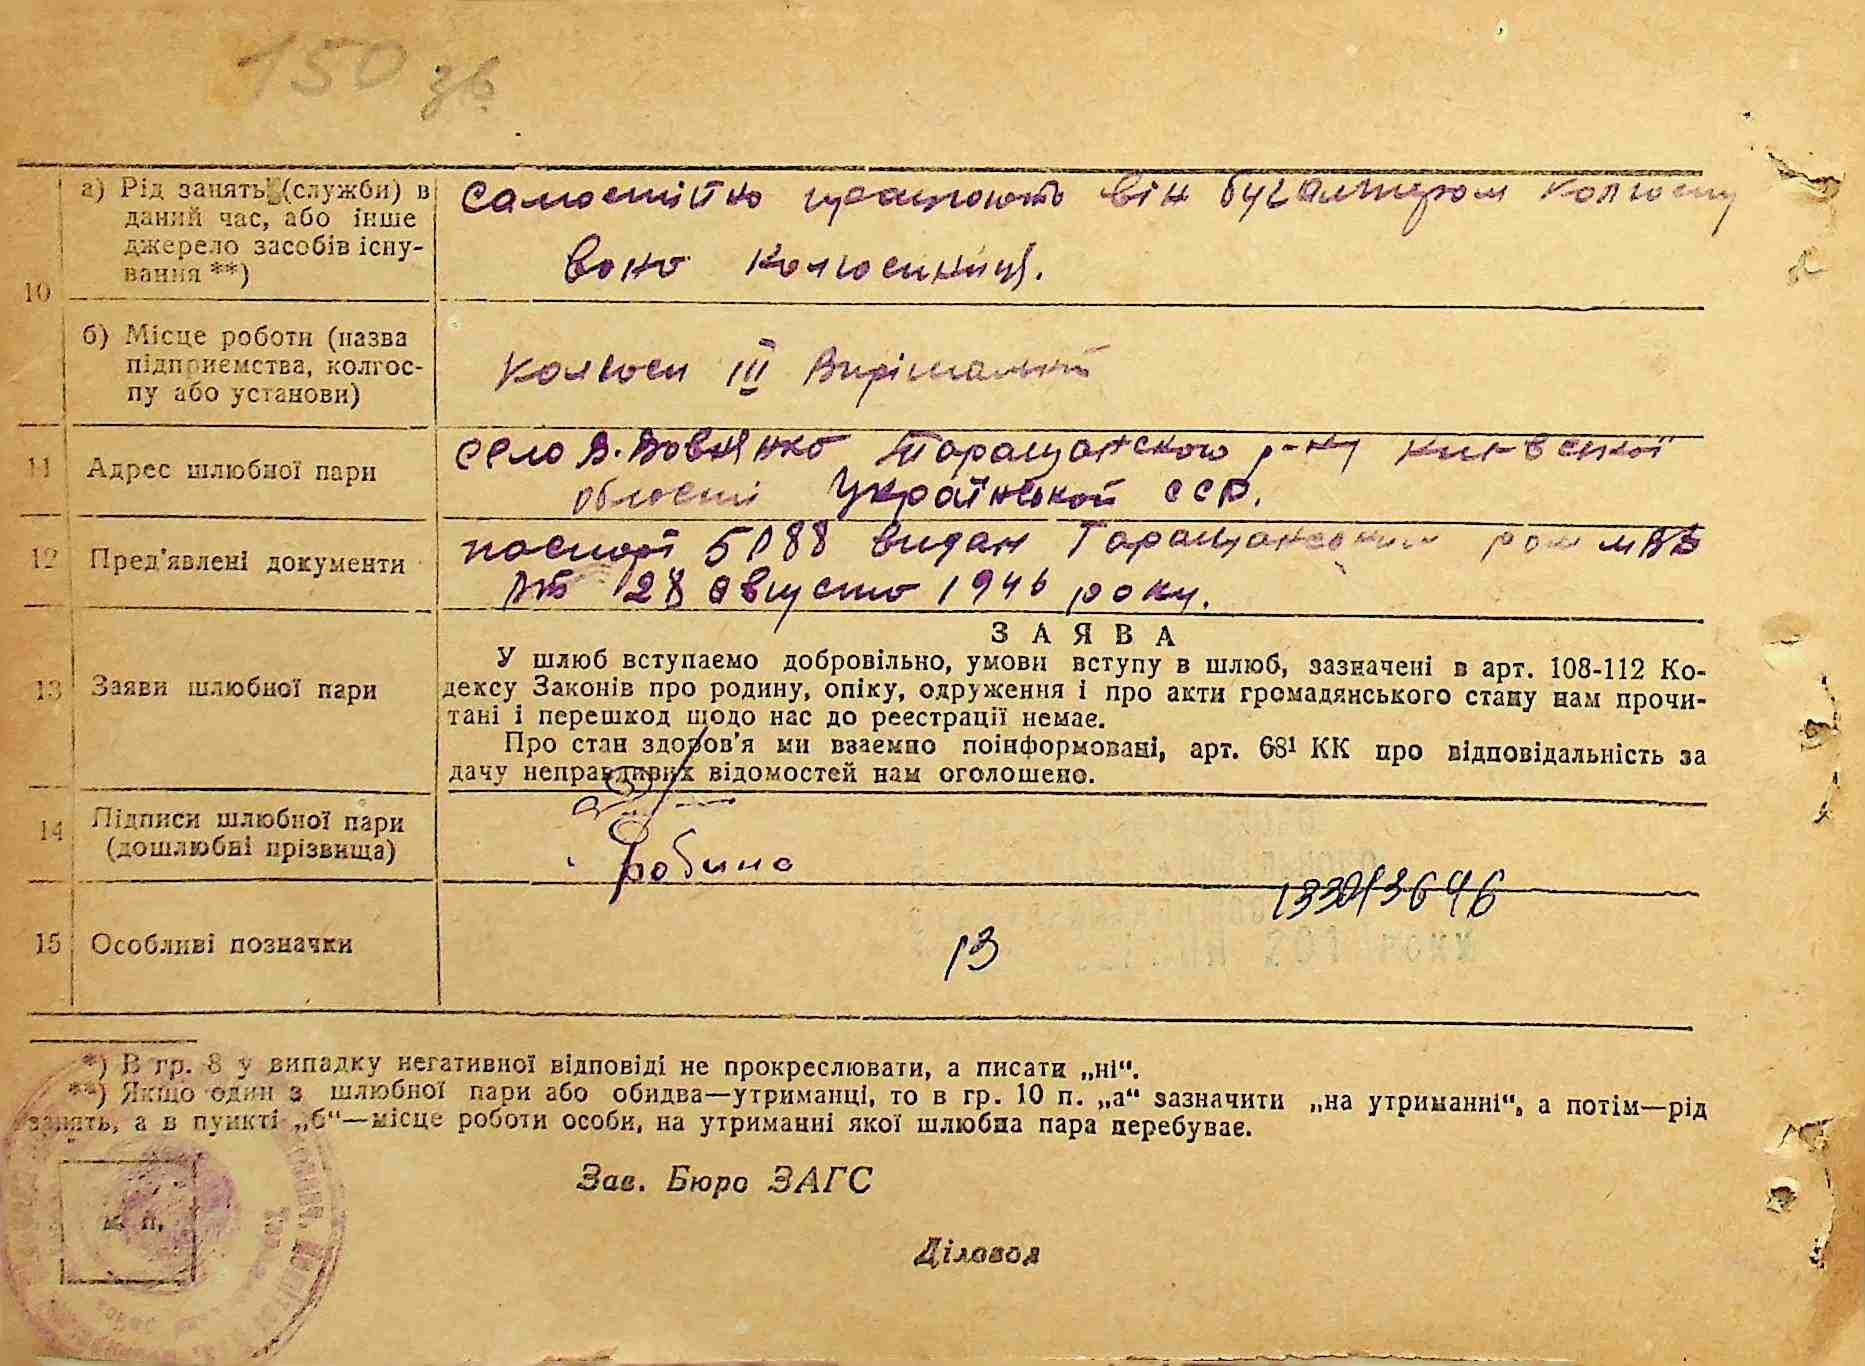 150 зв
10 а) Рід занять (служби) в даний час, або інше джерело засобів існування **)
самостійно працюють він бугалтером колгоспу
вона колгоспниця.
б) Місце роботи (назва підприємства, колгоспу або установи)
колгосп III Вирішальний
11 Адрес шлюбної пари
село В. Вовнянка Таращанского р-ну київської
області Української ССР.
12 Пред'явлені документи
паспорт 5188 видан Таращанським МВД
від 28 августа 1946 року.
13 Заяви шлюбної пари
ЗАЯВА
У шлюб вступаємо добровільно, умови вступу в шлюб, зазначені в арт. 108-112 Ко-
дексу Законів про родину, опіку, одруження і про акти громадянського стану нам прочи-
тані і перешкод щодо нас до реєстрації немає.
Про стан здоров'я ми взаємно поінформовані, арт. 68¹ КК про відповідальність за
дачу неправдивих відомостей нам оголошено.
14 Підписи шлюбної пари
(дошлюбні прізвища)
15 Особливі позначки
13
*) В гр. 8 у випадку негативної відповіді не прокреслювати, а писати „ні“.
**) Якщо один з шлюбної пари або обидва—утриманці, то в гр. 10 п. „а“ зазначити „на утриманні“, а потім—рід
занять, а в пункті „б“—місце роботи особи, на утриманні якої шлюбна пара перебуває.
Зав. Бюро ЗАГС
М. П.
Діловод